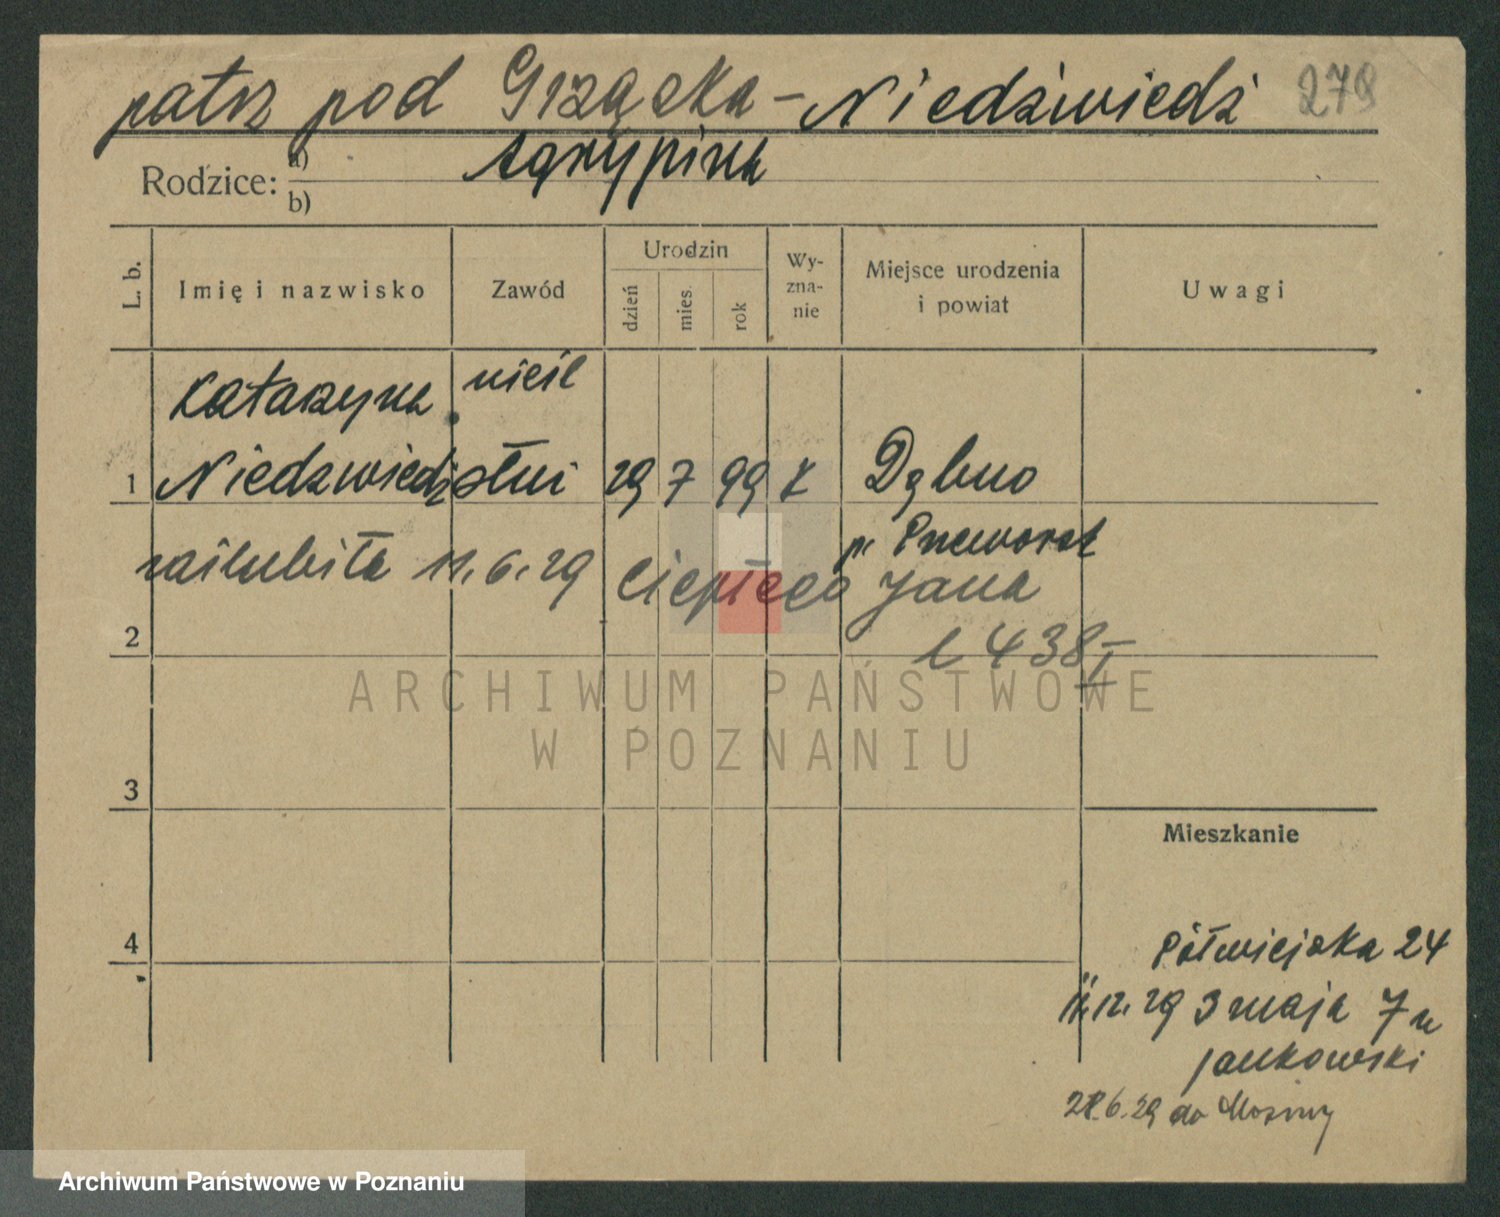 patrz pod Grząska - Niedźwiedź 279
Agrypina
Rodzice: a)
b)
L. b.
Imię i nazwisko
Zawód
Urodzin
dzień
mies.
rok
Wy-
zna-
nie
Miejsce urodzenia
i powiat
Uwagi
Katarzyna
1 Niedzwiedź 29 7 99 k Dębno
p. Przeworsk
zaślubiła 11.6.29 Ciepłego Jana
2 438 I
ARCHIWUM PAŃSTWOWE
W POZNANIU
3
Mieszkanie
4 Półwiejska 24
12.29 3 maja 7 u
Jankowski
6.29 do Mosiny
Archiwum Państwowe w Poznaniu